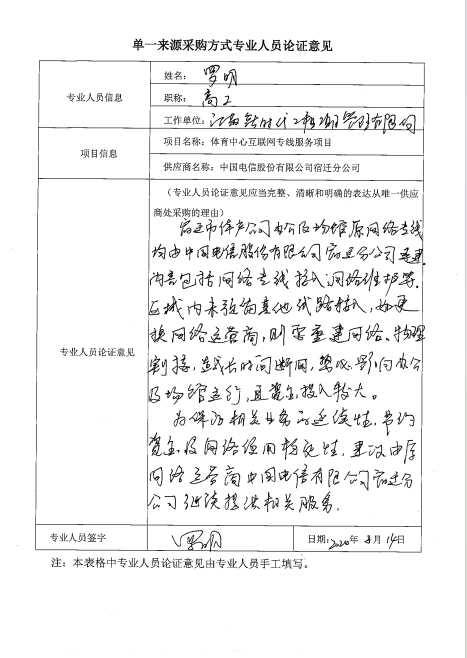 单一来源采购方式专业人员论证意见
专业人员信息
姓名：罗明
职称：高工
工作单位：江苏新时代工程项目管理有限公司
项目信息
项目名称：体育中心互联网专线服务项目
供应商名称：中国电信股份有限公司宿迁分公司
专业人员论证意见
（专业人员论证意见应当完整、清晰和明确的表达从唯一供应
商处采购的理由）
宿迁市体产公司办公区及场馆原网络专线
均由中国电信股份有限公司宿迁分公司承建
内容包括网络专线接入、网络维护等。
区域内未预留其他线路接入，如更
换网络运营商，则需重建网络。物理
割接，造成长时间断网，势必影响办公
及场馆运行，且资金投入较大。
为保障相关业务的延续性，节约
资金及网络使用稳定性，建议由原
网络运营商中国电信有限公司宿迁分
公司继续提供相关服务。
专业人员签字
罗明
日期：2020年8月14日
注：本表格中专业人员论证意见由专业人员手工填写。